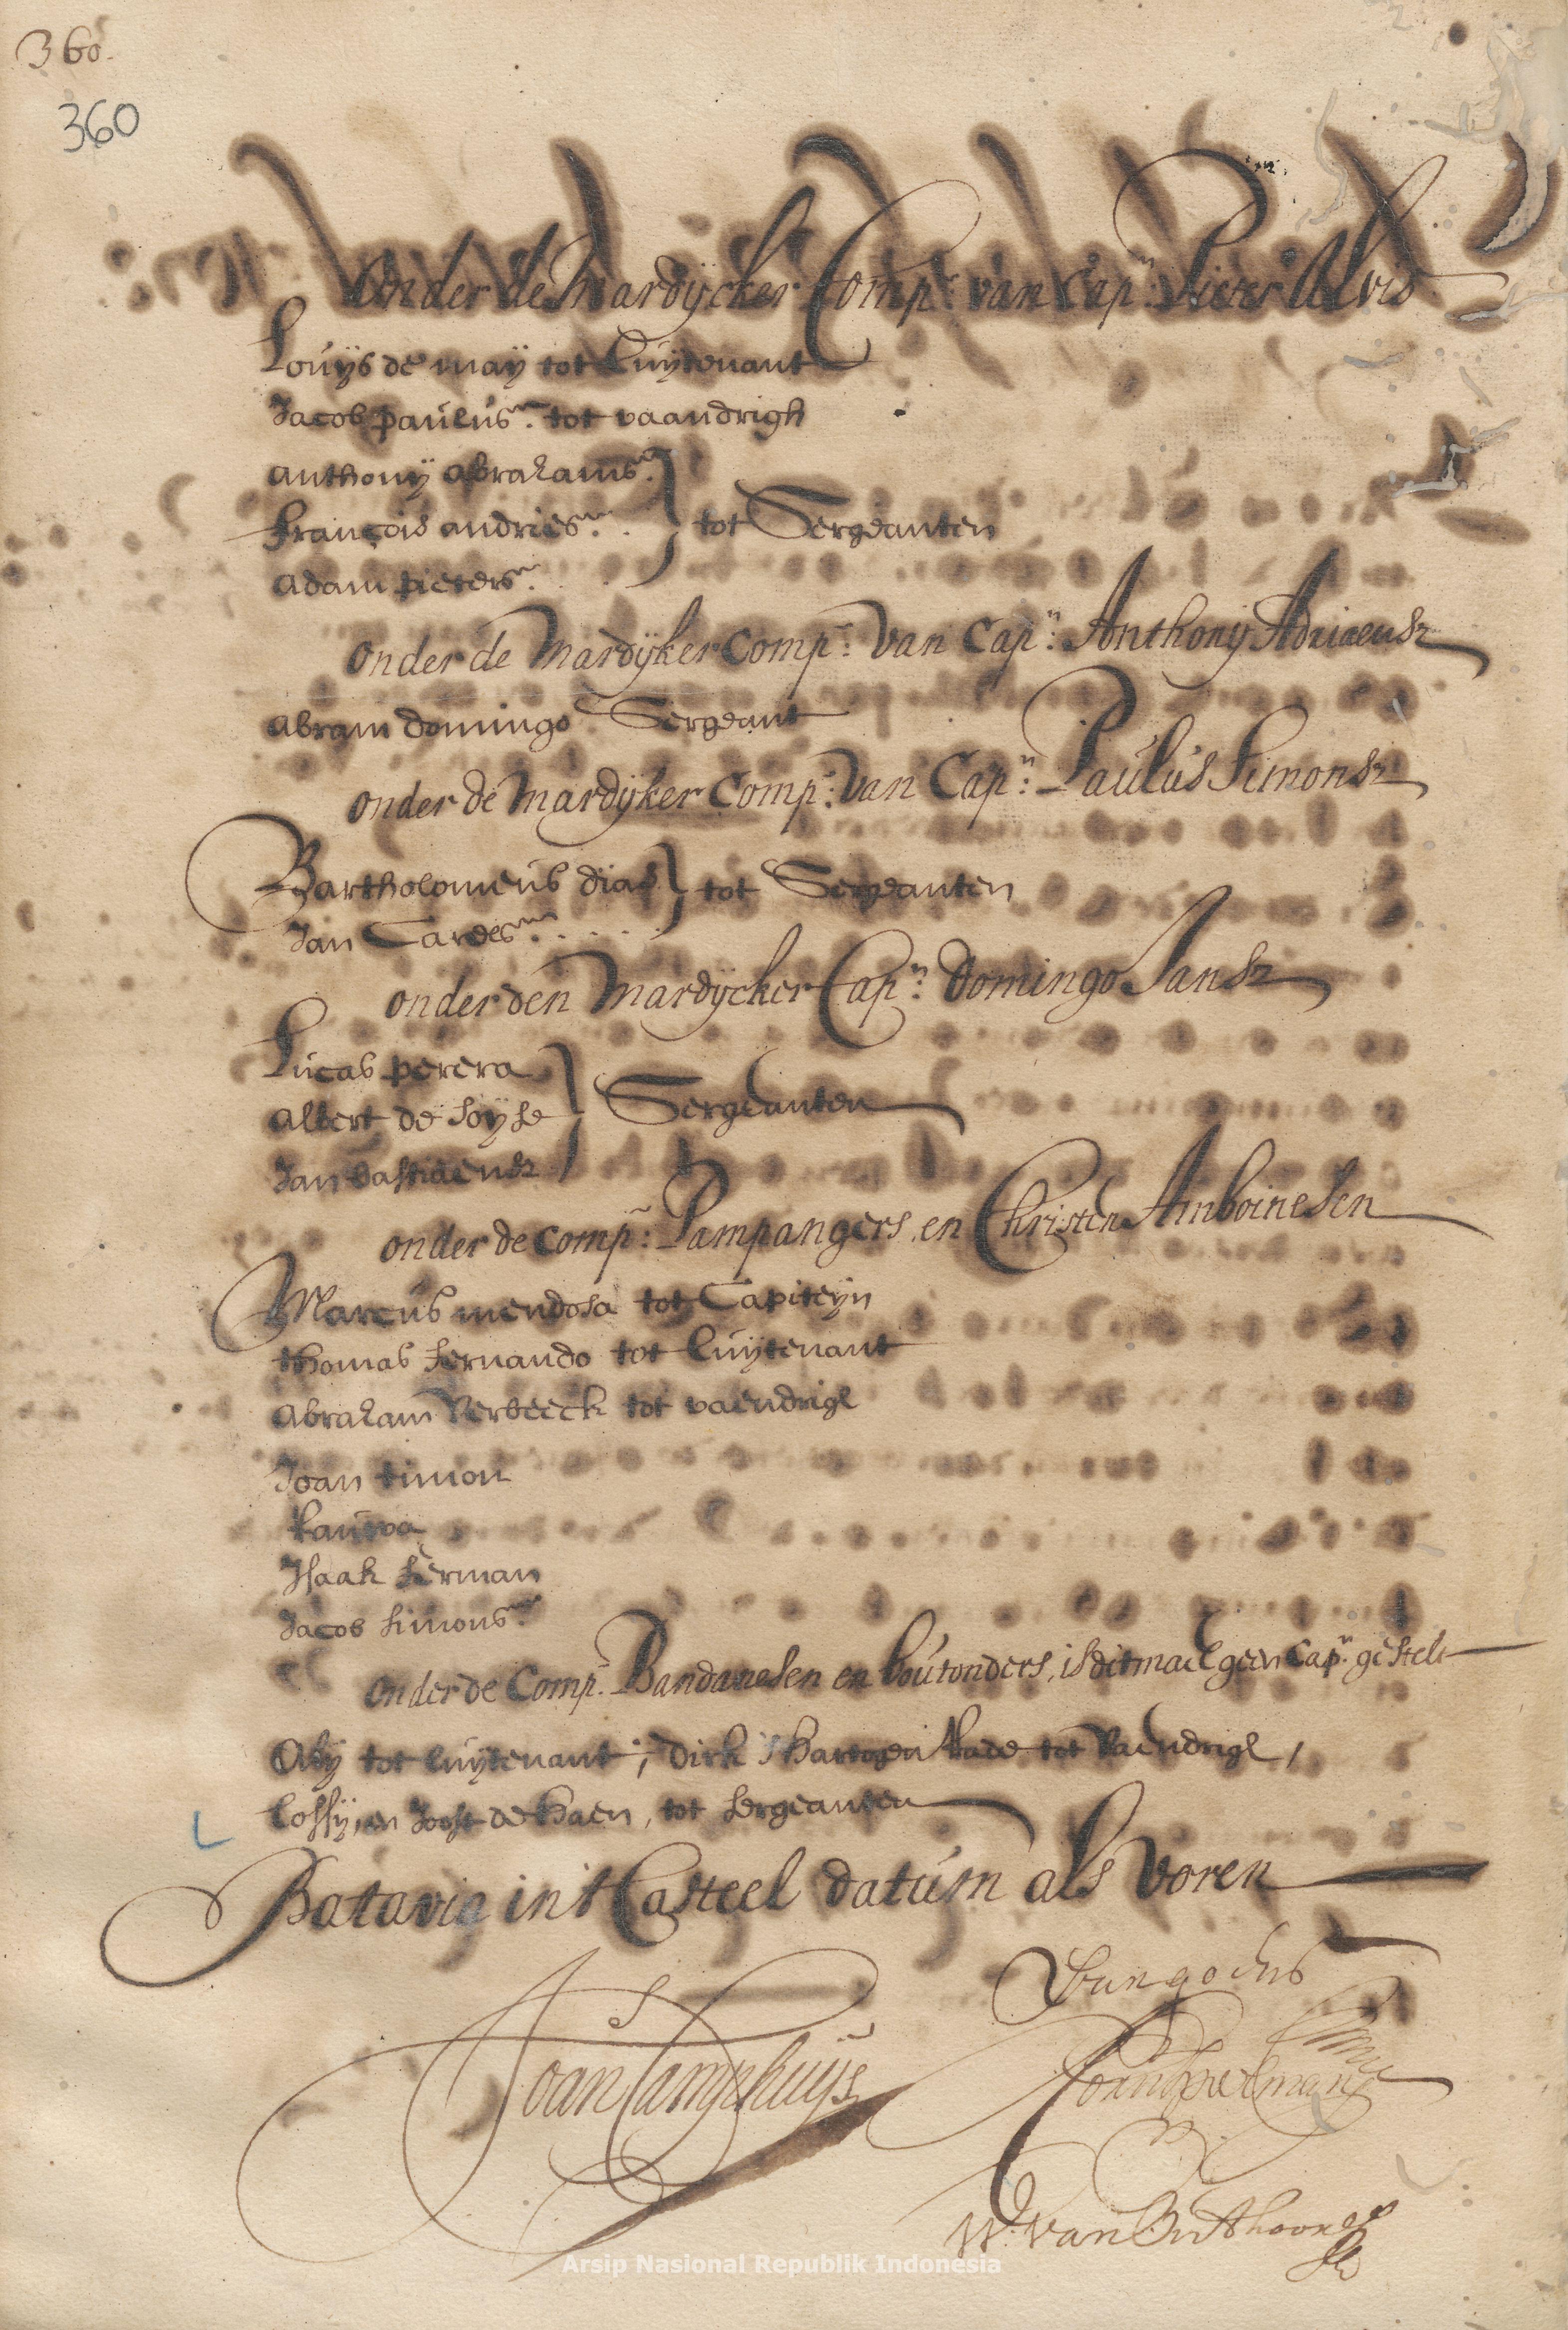 360.
360
Onder de Mardijcker Comp: van Cap:n Pieter Alvis
Louijs de maij tot Luijtenant
Jacob paulus: tot vaandrigh
anthonij abrahams:
François andries: } tot Sergeanten
adam pieters:
onder de Mardijker Comp: van Cap:n Anthonij Adriaensz
abram domingo Sergeant
onder de Mardijker Comp: van Cap:n Paulus Simonsz
Bartholomeus dias } tot Sergeanten
Jan Cardes:
onder den Mardijcker Cap:n Domingo Jansz
Lucas perera
albert de soijse } Sergeanten
Jan bastiaensz
onder de Comp: Pampangers en Christen Amboinesen
Marcus mendosa tot Capiteijn
thomas fernando tot Luijtenant
abraham Verbeeck tot vaendrigh
Joan timon
kauwa
Isaak herman
Jacob simons:
onder de Comp: Bandanesen en boutonders, is ditmael geen Cap:n gestelt
Abij tot luijtenant; dirk 's hartogen tot Vaendrigh,
Cossij, en Joost de haen, tot sergeanten
Batavia int Casteel datum als voren
Joan Camphuijs
W. van Outhoorn
Arsip Nasional Republik Indonesia